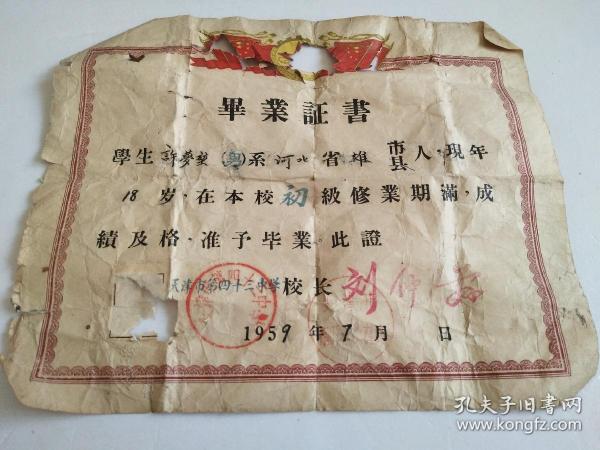 畢業証書
學生許夢契(男)系河北省雄市县人,現年
18岁,在本校初級修業期滿,成
績及格,准予毕業。此證
天津市第四十三中學校长刘
1959年7月 日
孔夫子旧書网
www.kongfz.com